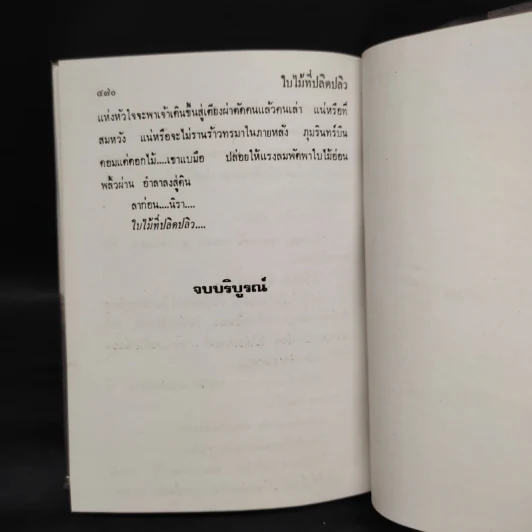 ๔๗๐
ใบไม้ที่ปลิดปลิว
แห่งหัวใจจะพาเจ้าเดินขึ้นสู่เตียงผ่าตัดคนแล้วคนเล่า แน่หรือที่
สมหวัง แน่หรือจะไม่ร้าวรานทรมาในภายหลัง ภุมรินทร์บิน
ดอมแต่ดอกไม้....เขาแบมือ ปล่อยให้แรงลมพัดพาใบไม้อ่อน
พลิ้วผ่าน อำลาลงสู่ดิน
ลาก่อน....นิรา....
ใบไม้ที่ปลิดปลิว....
จบบริบูรณ์